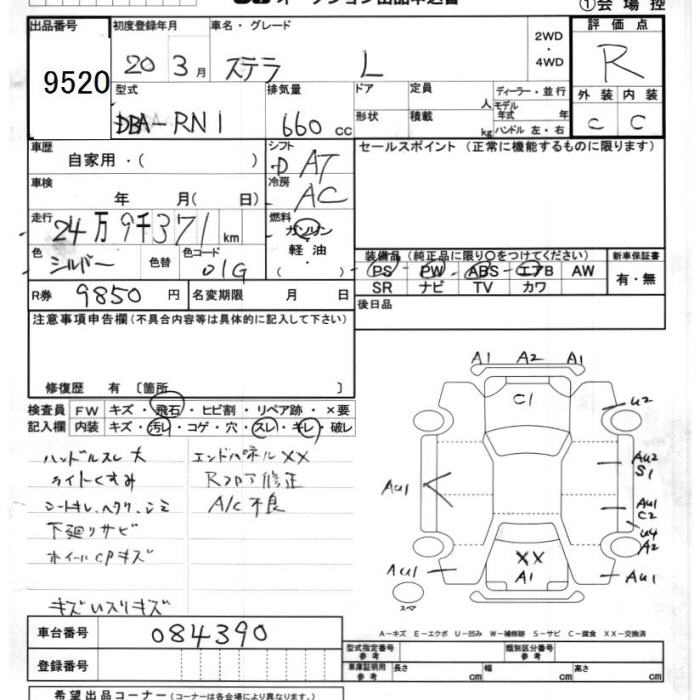 オークション出品申込書
①会場控
出品番号 9520
初度登録年月 20 3月
車名・グレード ステラ L
2WD・4WD
評価点 R
型式 DBA-RN1
排気量 660 cc
ドア 形状
定員 人
積載 kg
ディーラー・並行
モデル年式 年
ハンドル 左・右
外装 C
内装 C
車歴 自家用・( )
シフト D AT
セールスポイント (正常に機能するものに限ります)
車検 年 月( 日)
冷房 AC
走行 24万9千371 km
燃料 ガソリン 軽油 ( )
色 シルバー 色替
色コード 01G
装備品 (純正品に限り○をつけてください)
新車保証書
PS PW ABS エアB AW
有・無
SR ナビ TV カワ
R券 9850 円
名変期限 月 日
後日品
注意事項申告欄 (不具合内容等は具体的に記入して下さい)
修復歴 有 〔箇所 〕
検査員 記入欄
FW キズ・飛石・ヒビ割・リペア跡・×要
内装 キズ・汚レ・コゲ・穴・スレ・キレ・破レ
ハンドルスレ大
エンドパネルXX
ライトくすみ
Rフロア修正
シートキレ、ヘタリ、シミ
A/C不良
下廻りサビ
ホイールCPキズ
キズいスリキズ
A1 A2 A1
C1
U2
AU2
S1
AU1
AU1
C2
U4
A2
XX
A1
AU1
AU1
スペア
A-キズ E-エクボ U-凹み W-補修跡 S-サビ C-腐食 XX-交換済
車台番号 084390
型式指定番号 参考
類別区分番号 参考
登録番号
車庫証明用 参考
長さ cm 幅 cm 高さ cm
希望出品コーナー (コーナーは各会場により異なります。)